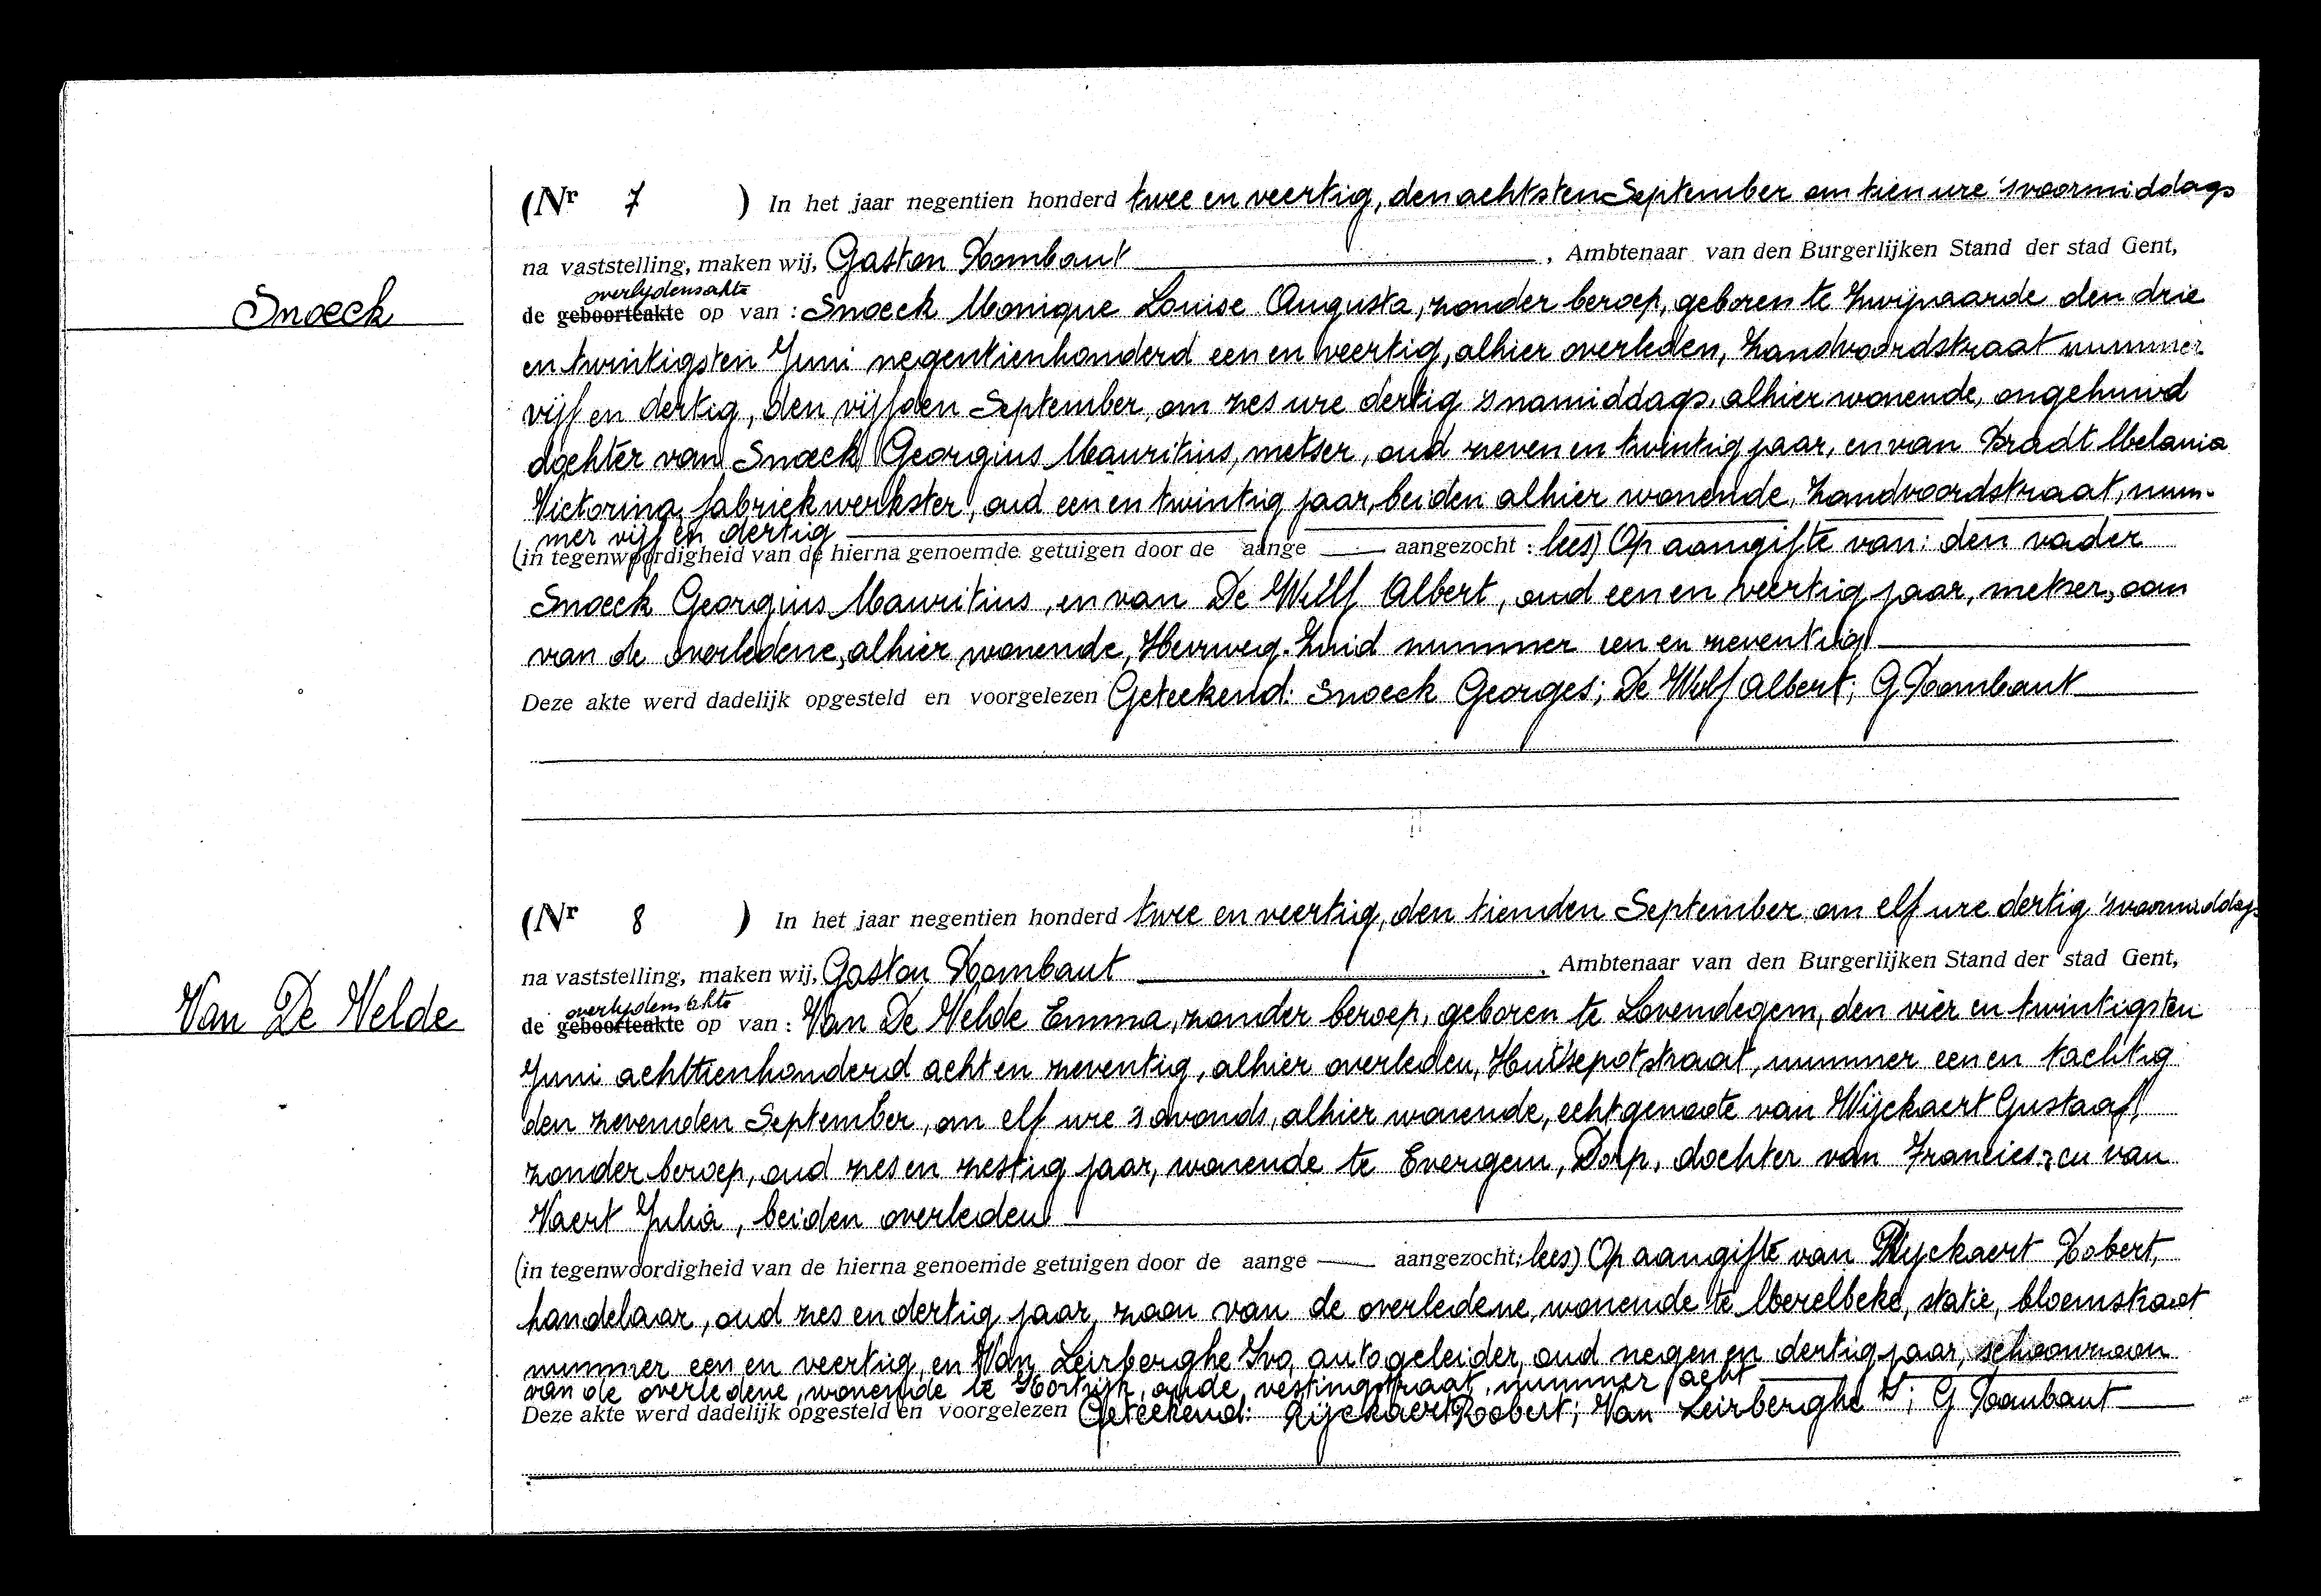 (Nr 7 ) In het jaar negentien honderd twee en veertig, den achtsten September om tien ure 'svoormiddags
na vaststelling, maken wij, Gaston Rombaut , Ambtenaar van den Burgerlijken Stand der stad Gent,
overlijdensakte
Snoeck
de geboorteakte op van : Snoeck Monique Louise Augusta, zonder beroep, geboren te Zwijnaarde den drie
en twintigsten Juni negentienhonderd een en veertig, alhier overleden, Zandvoordstraat nummer
vijf en dertig, den vijfden September, om zes ure dertig snamiddags, alhier wonende, ongehuwd
dochter van Snoeck Georgius Mauritius, metser, oud zeven en twintig jaar, en van Bradt Melania
Victorina, fabriekwerkster, oud een en twintig jaar, beiden alhier wonende, Zandvoordstraat, num-
mer vijf en dertig
(in tegenwoordigheid van de hierna genoemde getuigen door de aange aangezocht : lees) Op aangifte van: den vader
Snoeck Georgius Mauritius, en van De Wulf Albert, oud een en veertig jaar, metser, oom
van de overledene, alhier wonende, Heerweg-Zuid nummer een en zeventig
Deze akte werd dadelijk opgesteld en voorgelezen Geteekend: Snoeck Georges; De Wulf Albert; G Rombaut
(Nr 8 ) In het jaar negentien honderd twee en veertig, den tienden September om elf ure dertig 'svoormiddags
na vaststelling, maken wij, Gaston Rombaut , Ambtenaar van den Burgerlijken Stand der stad Gent,
overlijdensakte
Van De Velde
de geboorteakte op van : Van De Velde Emma, zonder beroep, geboren te Lovendegem, den vier en twintigsten
Juni achttienhonderd acht en zeventig, alhier overleden, Hutsepotstraat, nummer een en tachtig
den zevenden September, om elf ure s avonds, alhier wonende, echtgenoote van Rijckaert Gustaaf,
zonder beroep, oud zes en zestig jaar, wonende te Evergem, Dorp, dochter van Francies; en van
Vaert Julia, beiden overleden
(in tegenwoordigheid van de hierna genoemde getuigen door de aange aangezocht; lees) Op aangifte van Ryckaert Robert,
handelaar, oud zes en dertig jaar, zoon van de overledene, wonende te Merelbeke, statie, bloemstraat
nummer een en veertig, en Van Leirberghe Ivo, autogeleider, oud negen en dertig jaar, schoonzoon
van de overledene, wonende te Kortrijk, oude vestingstraat, nummer acht
Deze akte werd dadelijk opgesteld en voorgelezen Geteekend: Rijckaert Robert; Van Leirberghe I; G Rombaut